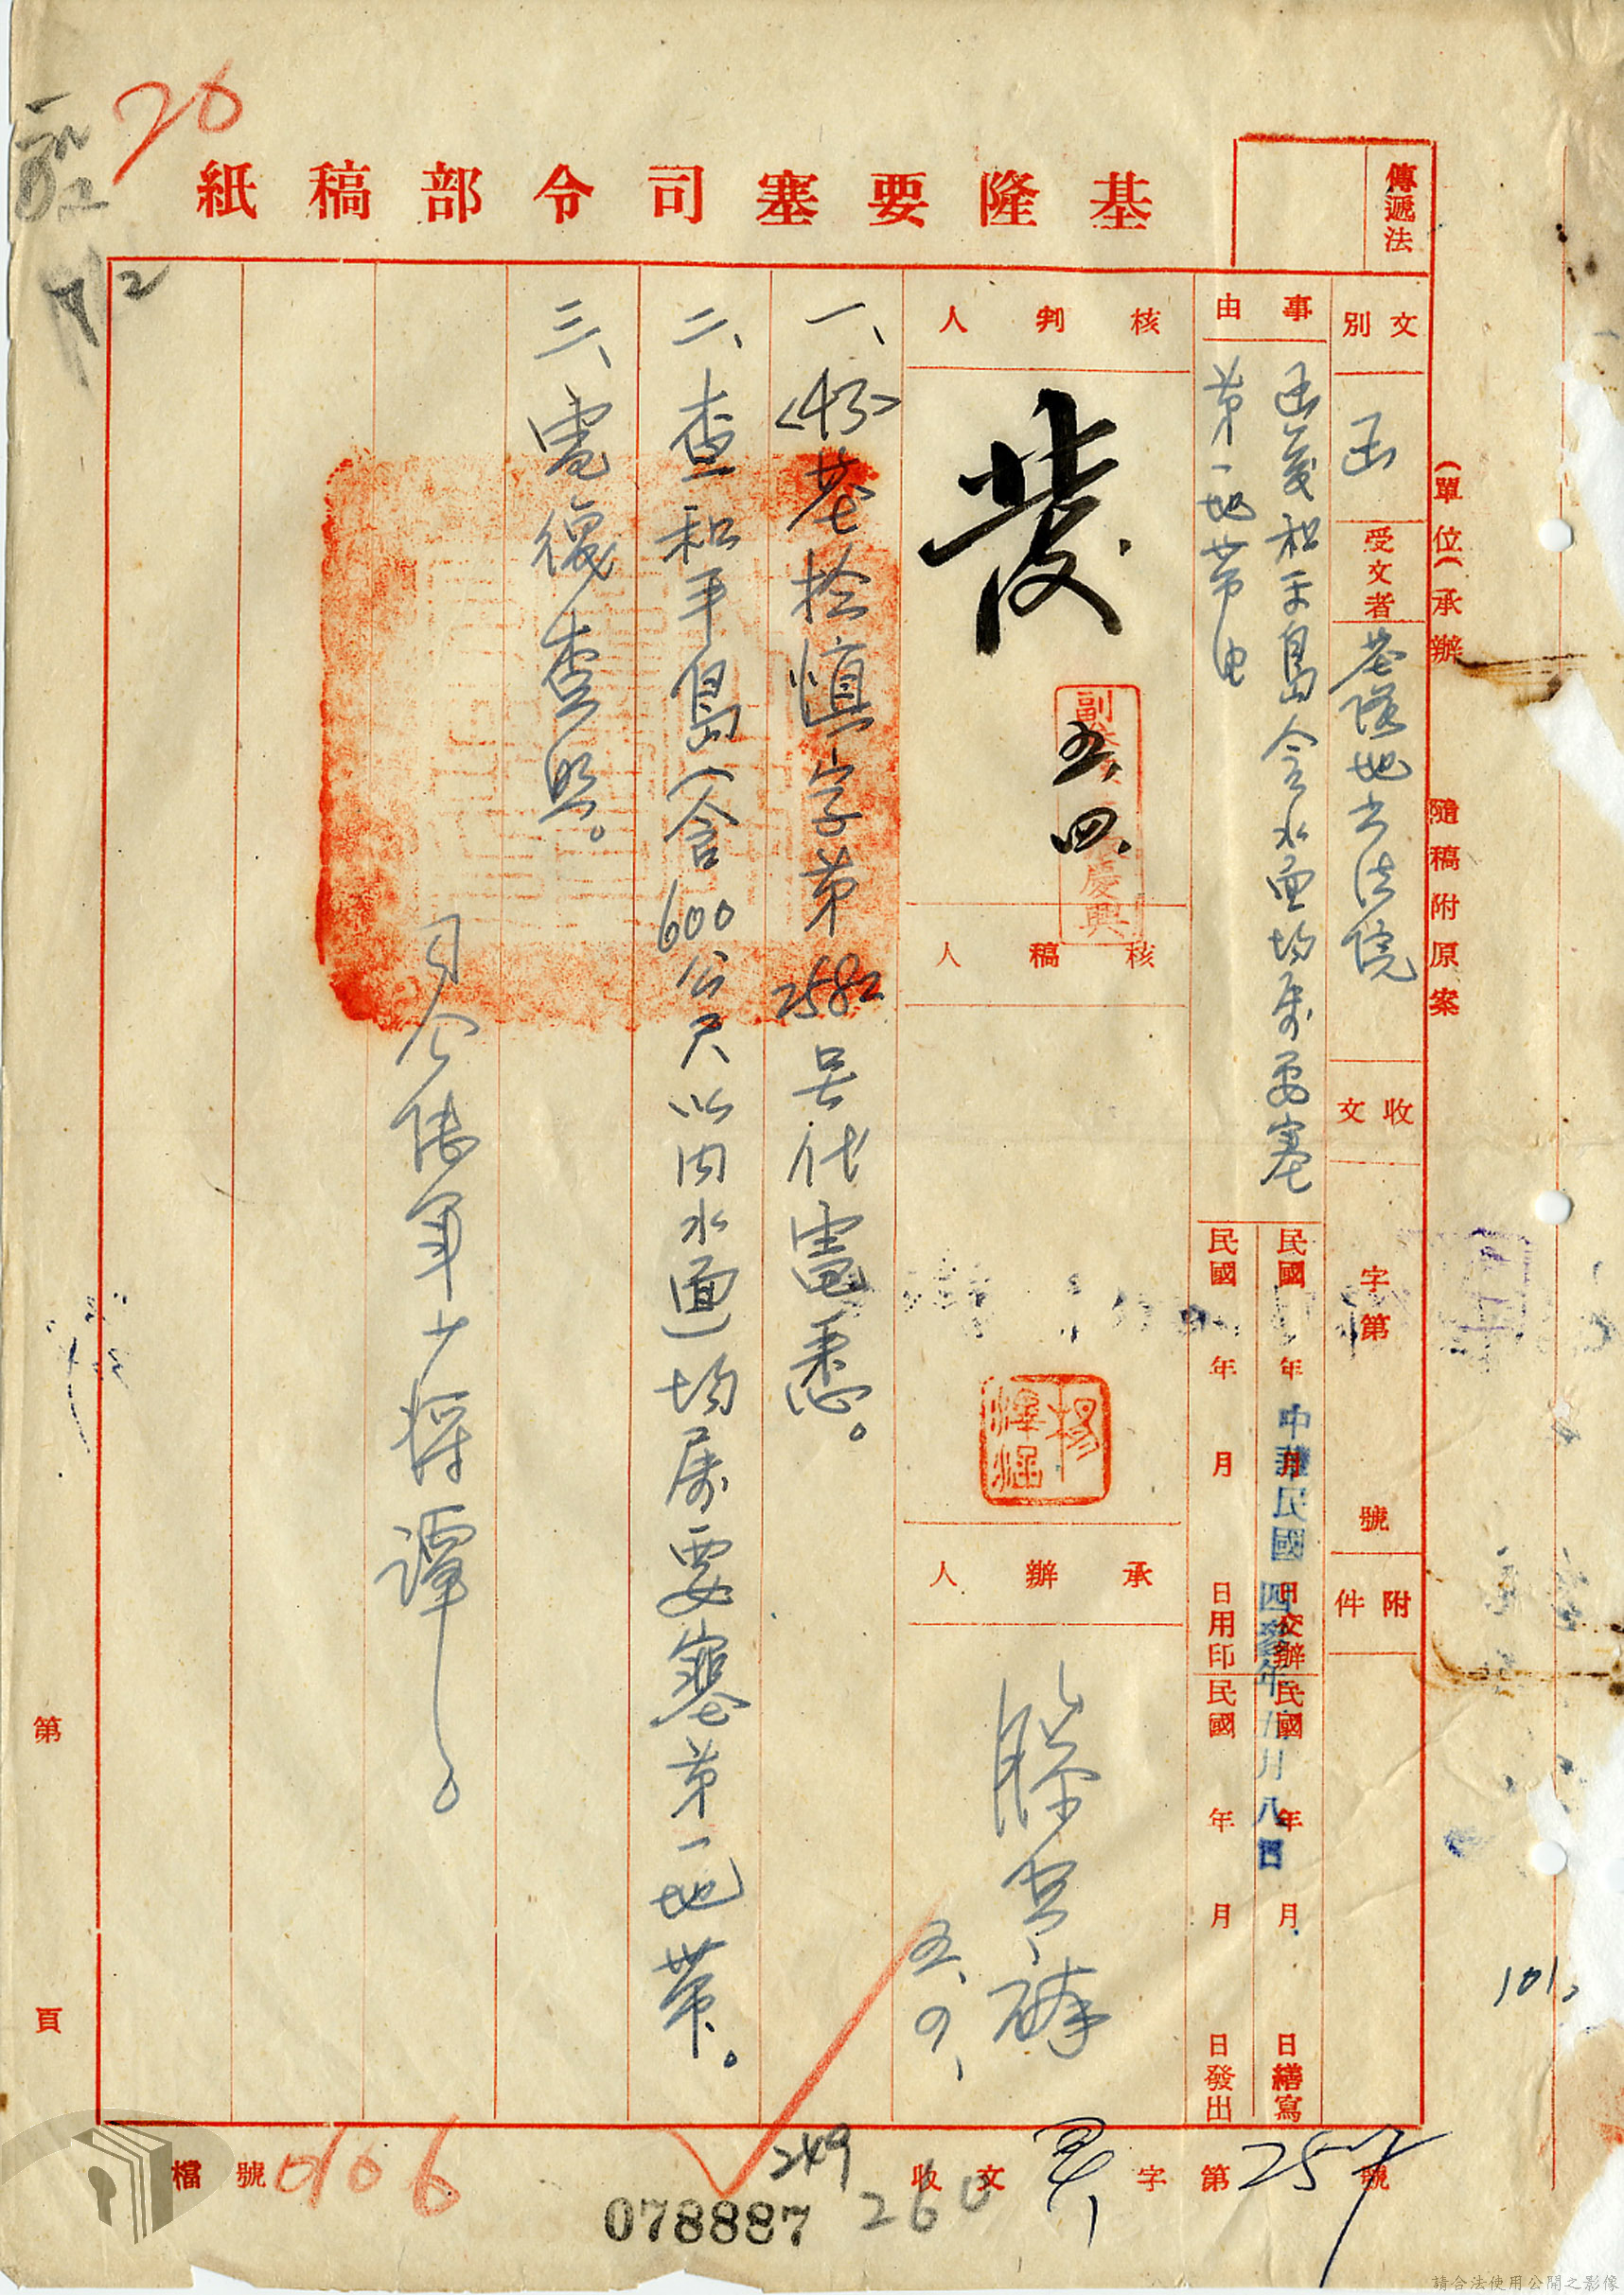 基隆要塞司令部稿紙
傳遞法
(單位)承辦 隨稿附原案
文別 函
受文者 基隆地方法院
收文 字第 號
附件
事由
函復和平島含水面均屬要塞
第一地帶由
民國 年 月 日交辦
民國 年 月 日繕寫
民國 年 月 日用印
民國 年 月 日發出
中華民國四參年五月八日
核判人
發
五、四、
核稿人
楊
承辦人
滕
五、
一、<43>基檢慎字第2582号代電悉。
二、查和平島(含600公尺以內水面)均屬要塞第一地帶。
三、電復查照。
司令陸軍少將譚
第 頁
26
檔號 0166
收文 字第 257 號
249
260
078887
請合法使用公開之影像